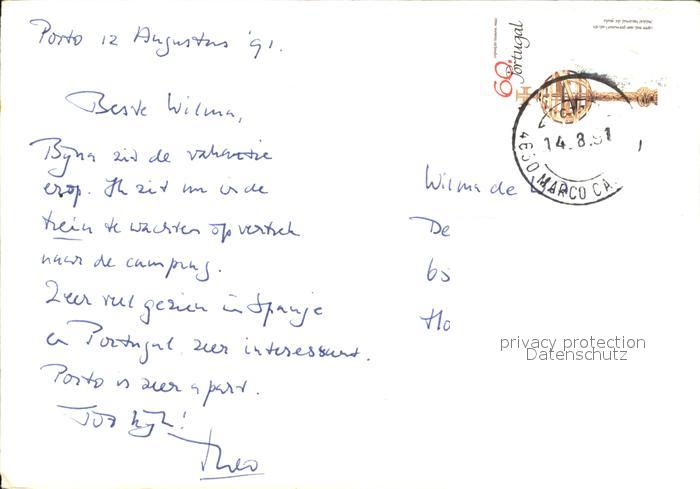 Porto 12 Augustus '91.
Beste Wilma,
Byna zit de vakantie
erop. Ik zit nu in de
trein te wachten op vertrek
naar de camping.
Zeer veel gezien in Spanje
en Portugal zeer interessant.
Porto is zeer apart.
Tot kijk!
Theo
60.
Portugal
14.8.91
4630 MARCO CA
Wilma de
De
65
Ho
privacy protection
Datenschutz